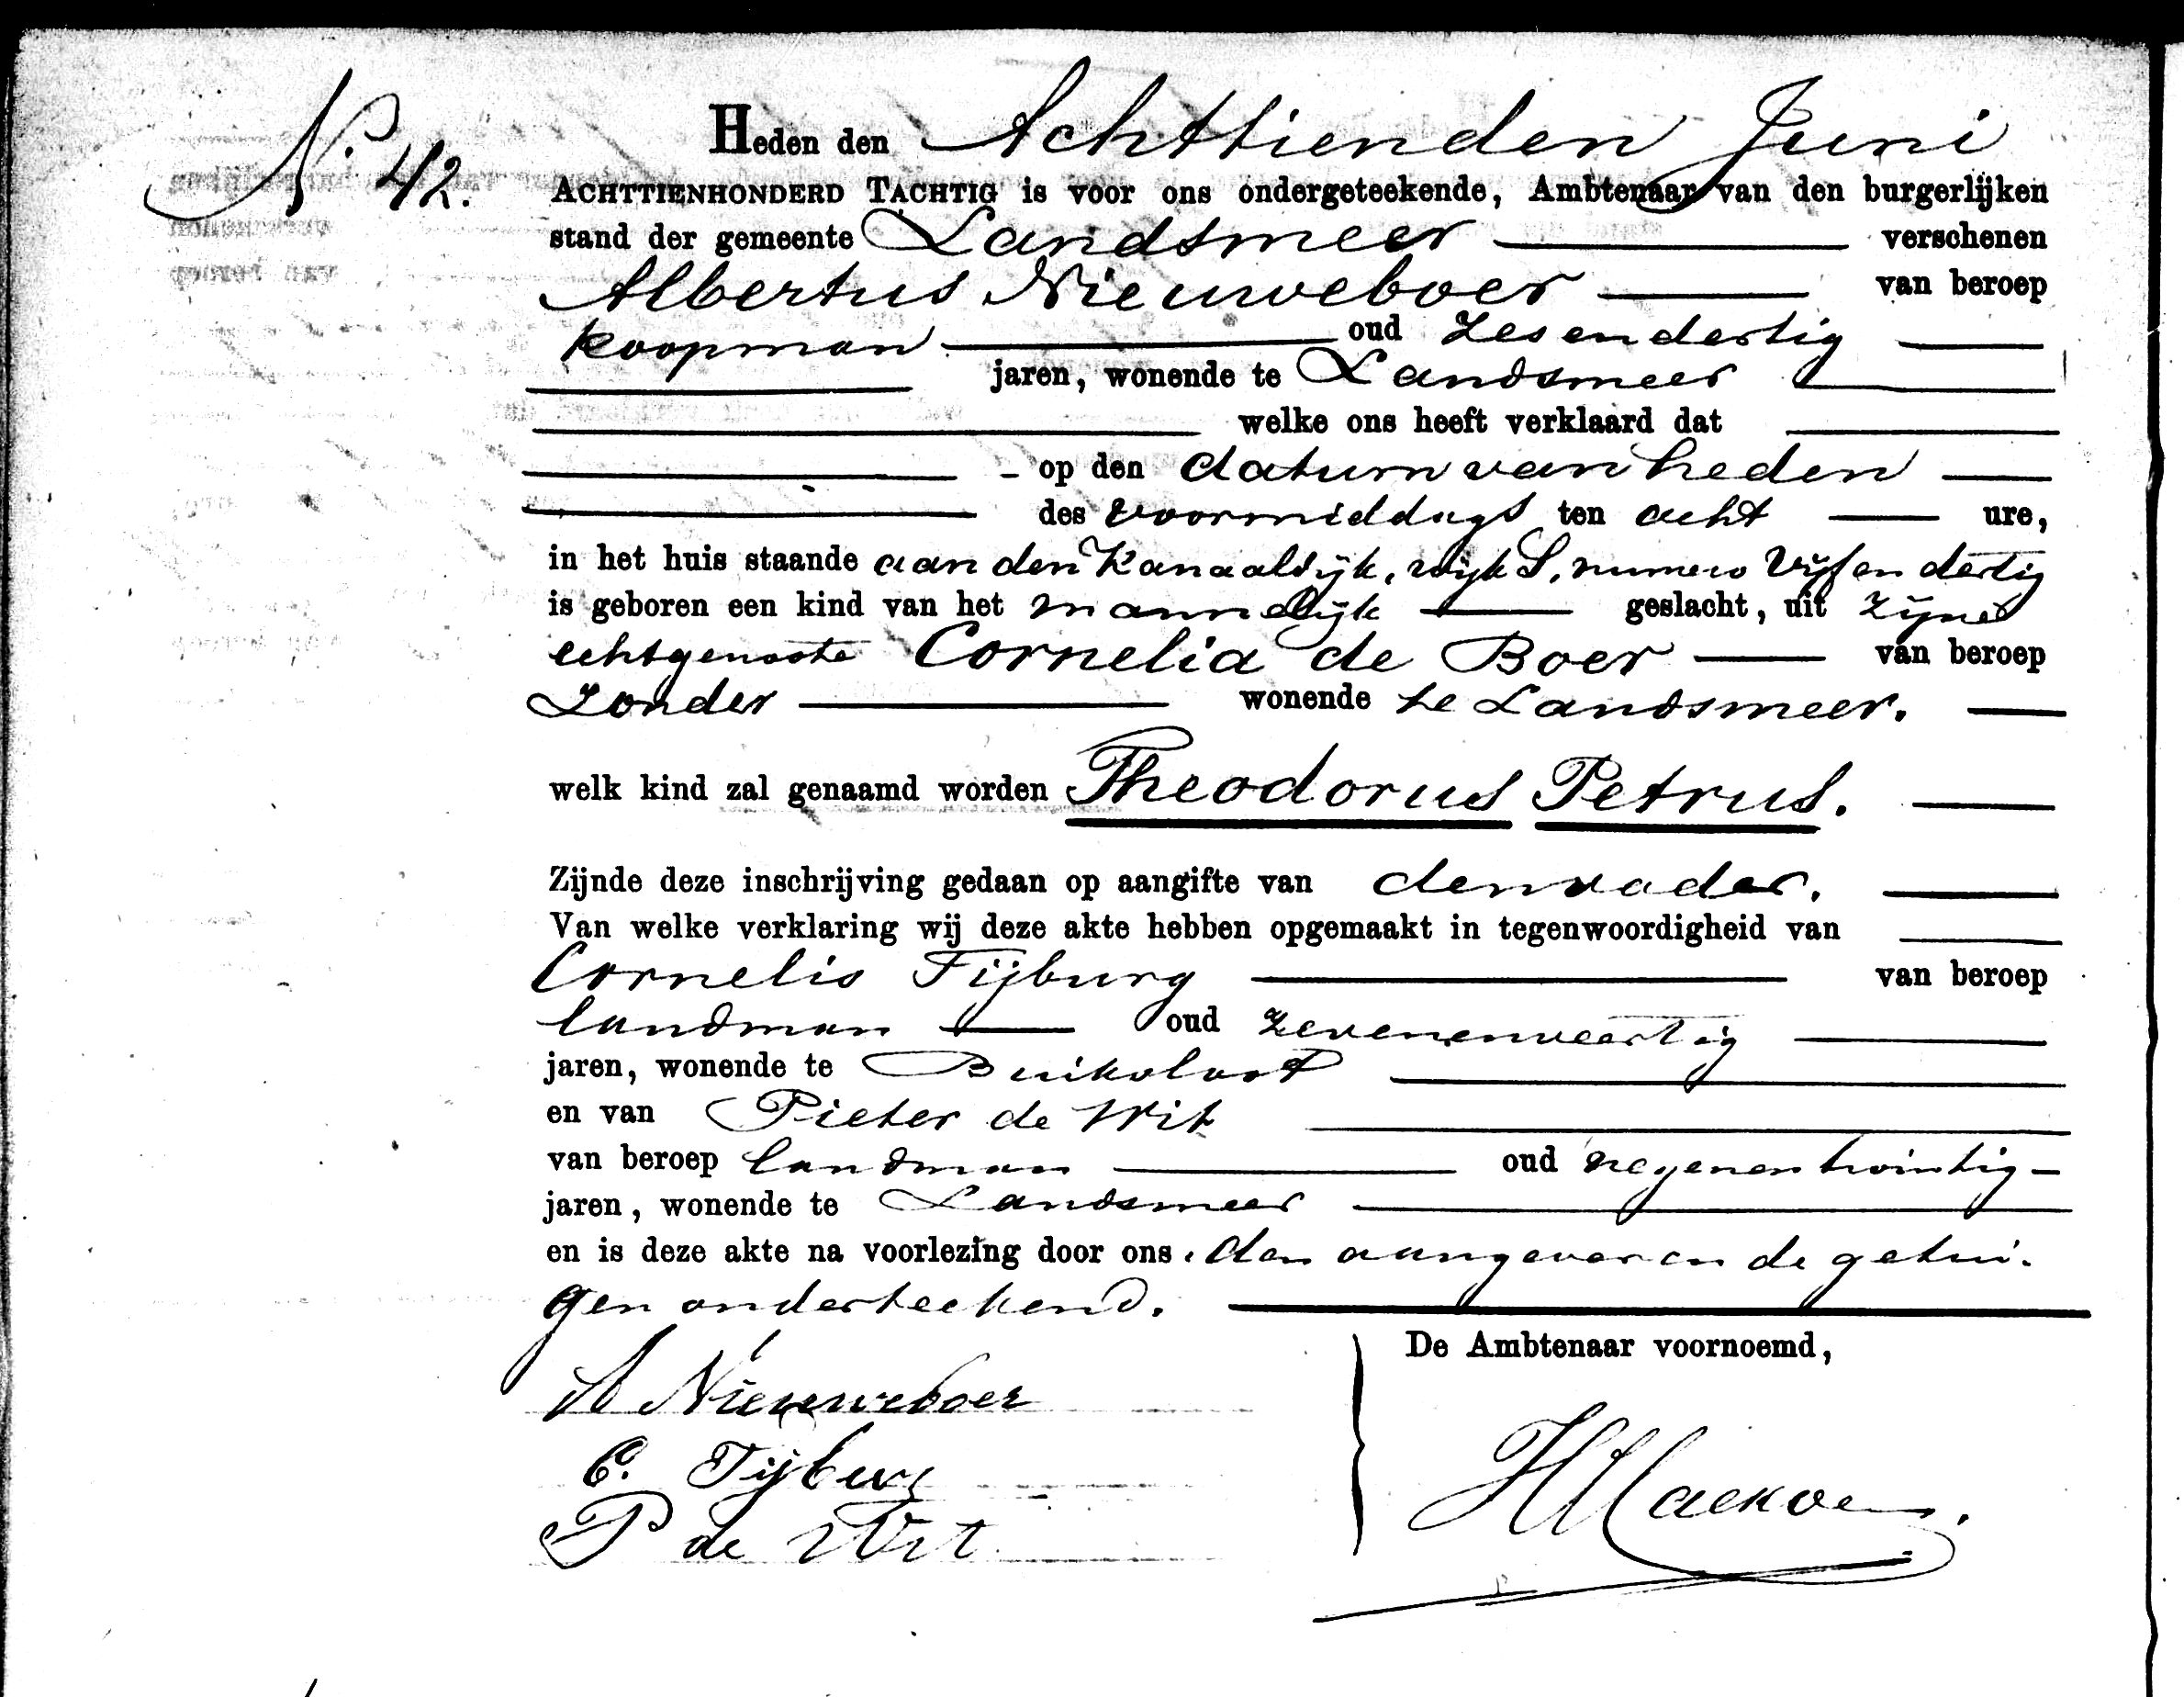 No. 42.
Heden den Achttienden Juni
ACHTTIENHONDERD TACHTIG is voor ons ondergeteekende, Ambtenaar van den burgerlijken
stand der gemeente Landsmeer verschenen
Albertus Nieuweboer van beroep
koopman oud Zesendertig
jaren, wonende te Landsmeer
welke ons heeft verklaard dat
op den datum van heden
des voormiddags ten acht ure,
in het huis staande aan den Kanaaldijk, wijk S, numero Vijf en dertig
is geboren een kind van het mannelijk geslacht, uit zijne
echtgenoote Cornelia de Boer van beroep
Zonder wonende te Landsmeer.
welk kind zal genaamd worden Theodorus Petrus.
Zijnde deze inschrijving gedaan op aangifte van den vader.
Van welke verklaring wij deze akte hebben opgemaakt in tegenwoordigheid van
Cornelis Tijburg van beroep
landman oud zevenenveertig
jaren, wonende te Buiksloot
en van Pieter de Wit
van beroep landman oud negenentwintig
jaren, wonende te Landsmeer
en is deze akte na voorlezing door ons, den aangever en de getui-
gen onderteekend.
De Ambtenaar voornoemd,
A Nieuweboer
C. Tijburg
P de Wit